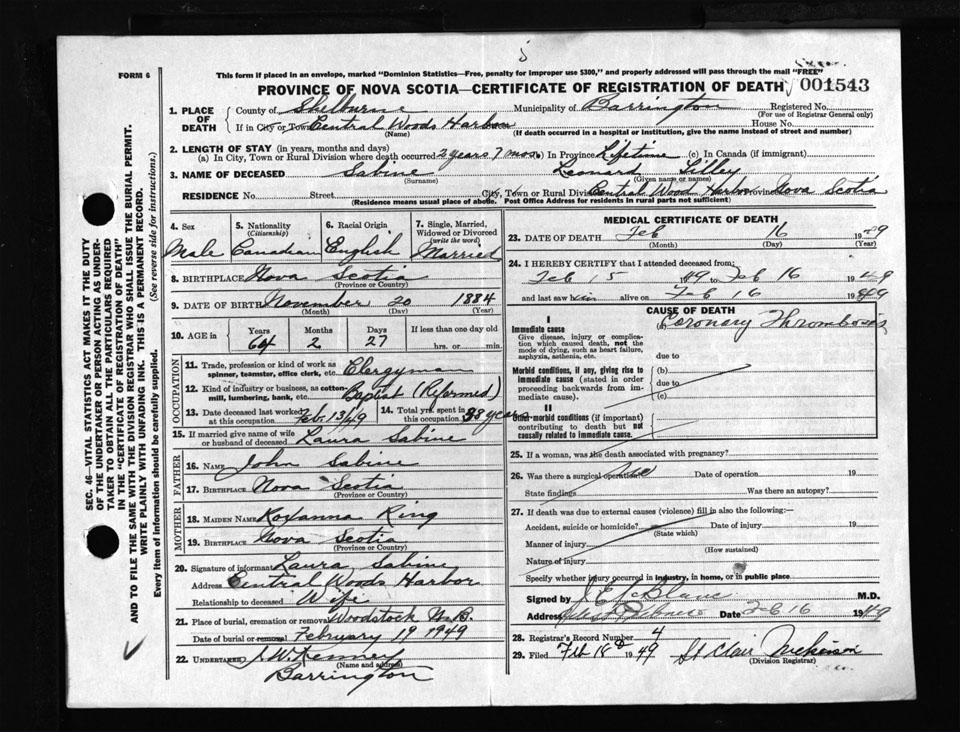 5
FORM 6
This form if placed in an envelope, marked "Dominion Statistics—Free, penalty for improper use $300," and properly addressed will pass through the mail "FREE"
PROVINCE OF NOVA SCOTIA—CERTIFICATE OF REGISTRATION OF DEATH 001543
1. PLACE OF DEATH County of Shelburne Municipality of Barrington Registered No.
(For use of Registrar General only)
If in City or Town Central Woods Harbor House No.
(Name) (If death occurred in a hospital or institution, give the name instead of street and number)
2. LENGTH OF STAY (in years, months and days)
(a) In City, Town or Rural Division where death occurred 2 years 7 mos. (b) In Province Lifetime (c) In Canada (if immigrant)
3. NAME OF DECEASED Sabine Leonard Silley
(Surname) (Given name or names)
RESIDENCE No. Street, City, Town or Rural Division Central Wood Harbor Province Nova Scotia
(Residence means usual place of abode. Post Office Address for residents in rural parts not sufficient)
4. Sex 5. Nationality (Citizenship) 6. Racial Origin 7. Single, Married, Widowed or Divorced (write the word)
Male Canadian English Married
8. BIRTHPLACE Nova Scotia
(Province or Country)
9. DATE OF BIRTH November 20 1884
(Month) (Day) (Year)
10. AGE in Years Months Days If less than one day old
64 2 27 hrs. or min.
OCCUPATION
11. Trade, profession or kind of work as spinner, teamster, office clerk, etc. Clergyman
12. Kind of industry or business, as cotton-mill, lumbering, bank, etc. Baptist (Reformed)
13. Date deceased last worked at this occupation Feb. 13/49 14. Total yrs. spent in this occupation 38 years
15. If married give name of wife or husband of deceased Laura Sabine
FATHER
16. NAME John Sabine
17. BIRTHPLACE Nova Scotia
(Province or Country)
MOTHER
18. MAIDEN NAME Roxanna Ring
19. BIRTHPLACE Nova Scotia
(Province or Country)
20. Signature of informant Laura Sabine
Address Central Woods Harbor
Relationship to deceased Wife
21. Place of burial, cremation or removal Woodstock N.B.
Date of burial or removal February 19 1949
22. UNDERTAKER J.W. Kenney
(Name and address)
Barrington
MEDICAL CERTIFICATE OF DEATH
23. DATE OF DEATH Feb 16 1949
(Month) (Day) (Year)
24. I HEREBY CERTIFY that I attended deceased from:
Feb 15 1949 to Feb 16 1949
and last saw him alive on Feb 16 1949
CAUSE OF DEATH
I
Immediate cause (a) Coronary Thrombosis
Give disease, injury or complication which caused death, not the mode of dying, such as heart failure, asphyxia, asthenia, etc. due to
Morbid conditions, if any, giving rise to immediate cause (stated in order proceeding backwards from immediate cause). (b)
due to
(c)
II
Other morbid conditions (if important) contributing to death but not causally related to immediate cause.
25. If a woman, was the death associated with pregnancy?
26. Was there a surgical operation? Date of operation 19
State findings Was there an autopsy?
27. If death was due to external causes (violence) fill in also the following:—
Accident, suicide or homicide? Date of injury 19
(State which)
Manner of injury
(How sustained)
Nature of injury
Specify whether injury occurred in industry, in home, or in public place
Signed by M.D.
Address Date Feb 16 1949
28. Registrar's Record Number 4
29. Filed Feb 18 1949 St Clair Nickerson
(Division Registrar)
SEC. 46—VITAL STATISTICS ACT MAKES IT THE DUTY OF THE UNDERTAKER OR PERSON ACTING AS UNDERTAKER TO OBTAIN ALL THE PARTICULARS REQUIRED IN THE "CERTIFICATE OF REGISTRATION OF DEATH"
AND TO FILE THE SAME WITH THE DIVISION REGISTRAR WHO SHALL ISSUE THE BURIAL PERMIT.
WRITE PLAINLY WITH UNFADING INK. THIS IS A PERMANENT RECORD.
Every item of information should be carefully supplied. (See reverse side for instructions.)